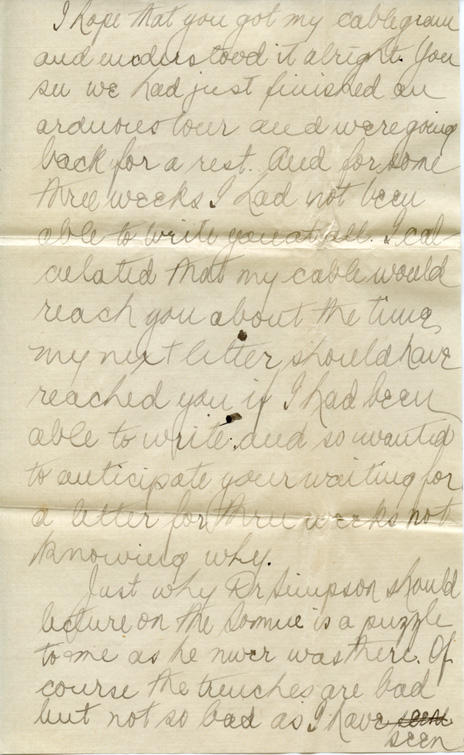 I hope that you got my cablegram
and understood it alright. You
see we had just finished an
arduous tour and were going
back for a rest. And for some
three weeks I had not been
able to write you at all. I cal
culated that my cable would
reach you about the time
my next letter should have
reached you if I had been
able to write. and so wanted
to anticipate your waiting for
a letter for three weeks not
knowing why.
Just why Dr Simpson should
lecture on the Somme is a puzzle
to me as he never was there. Of
course the trenches are bad
but not so bad as I have seen
seen